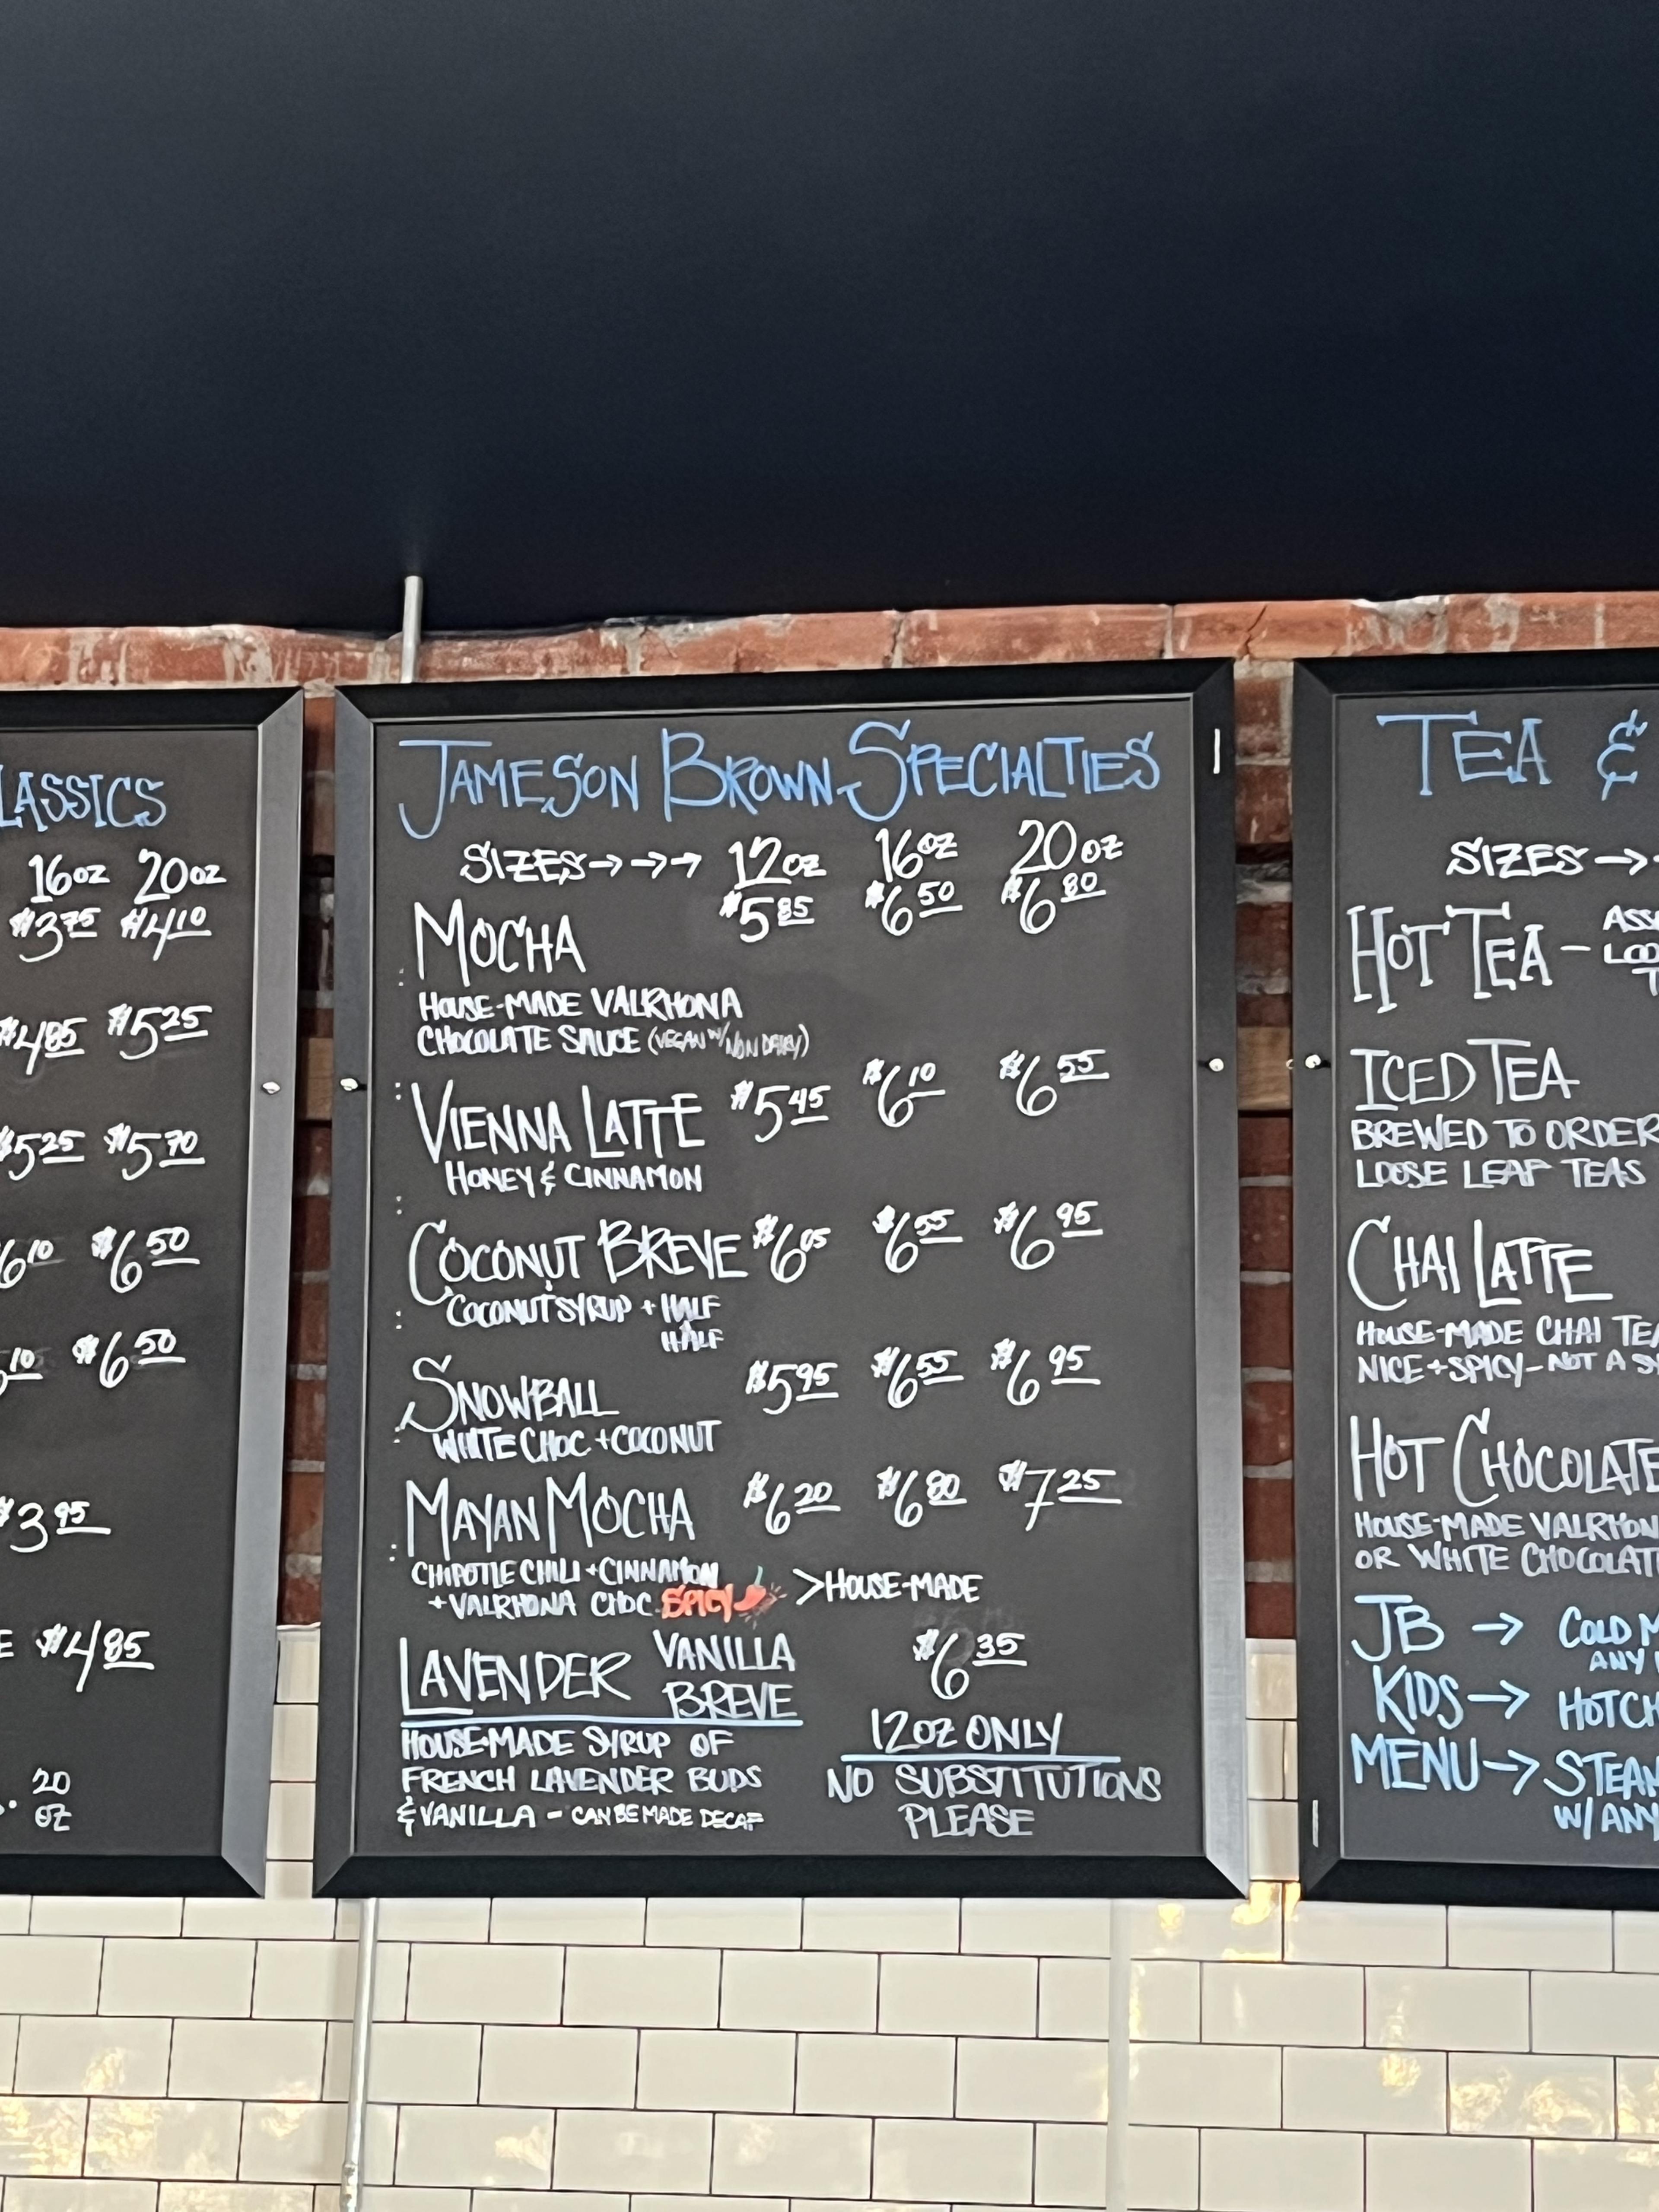 LASSICS
16oz 20oz
$3.75 $4.10
$4.85 $5.25
$5.25 $5.70
6.10 $6.50
10 $6.50
$3.95
E $4.85
20
oz
JAMESON BROWN SPECIALTIES
SIZES→→→ 12oz 16oz 20oz
MOCHA $5.85 $6.50 $6.80
HOUSE-MADE VALRHONA
CHOCOLATE SAUCE (VEGAN W/NON DAIRY)
VIENNA LATTE $5.45 $6.10 $6.55
HONEY & CINNAMON
COCONUT BREVE $6.05 $6.55 $6.95
COCONUT SYRUP + HALF
HALF
SNOWBALL $5.95 $6.55 $6.95
WHITE CHOC + COCONUT
MAYAN MOCHA $6.20 $6.80 $7.25
CHIPOTLE CHILI + CINNAMON
+ VALRHONA CHOC SPICY >HOUSE-MADE
LAVENDER VANILLA BREVE $6.35
HOUSE-MADE SYRUP OF
FRENCH LAVENDER BUDS
& VANILLA - CAN BE MADE DECAF
12oz ONLY
NO SUBSTITUTIONS
PLEASE
TEA &
SIZES→
HOT TEA - ASS
LOO
T
ICED TEA
BREWED TO ORDER
LOOSE LEAF TEAS
CHAI LATTE
HOUSE-MADE CHAI TEA
NICE + SPICY - NOT A S
HOT CHOCOLATE
HOUSE-MADE VALRHON
OR WHITE CHOCOLAT
JB → COLD M
ANY
KIDS→ HOT CH
MENU→ STEAM
W/ ANY